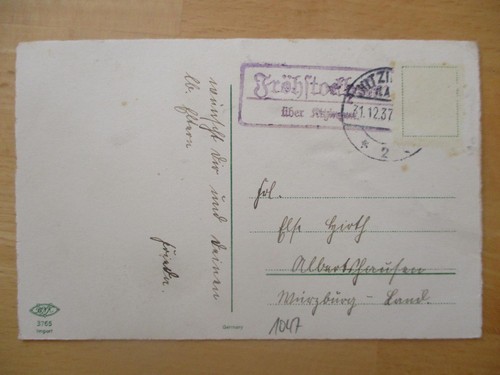 wünscht Dir und Deinen
lb. Eltern
Fröhstockh
über Kitzingen
KITZIN
31.12.37
* 2
Frl.
Else Hirth
Albertshausen
Würzburg - Land.
1047
3765
Germany